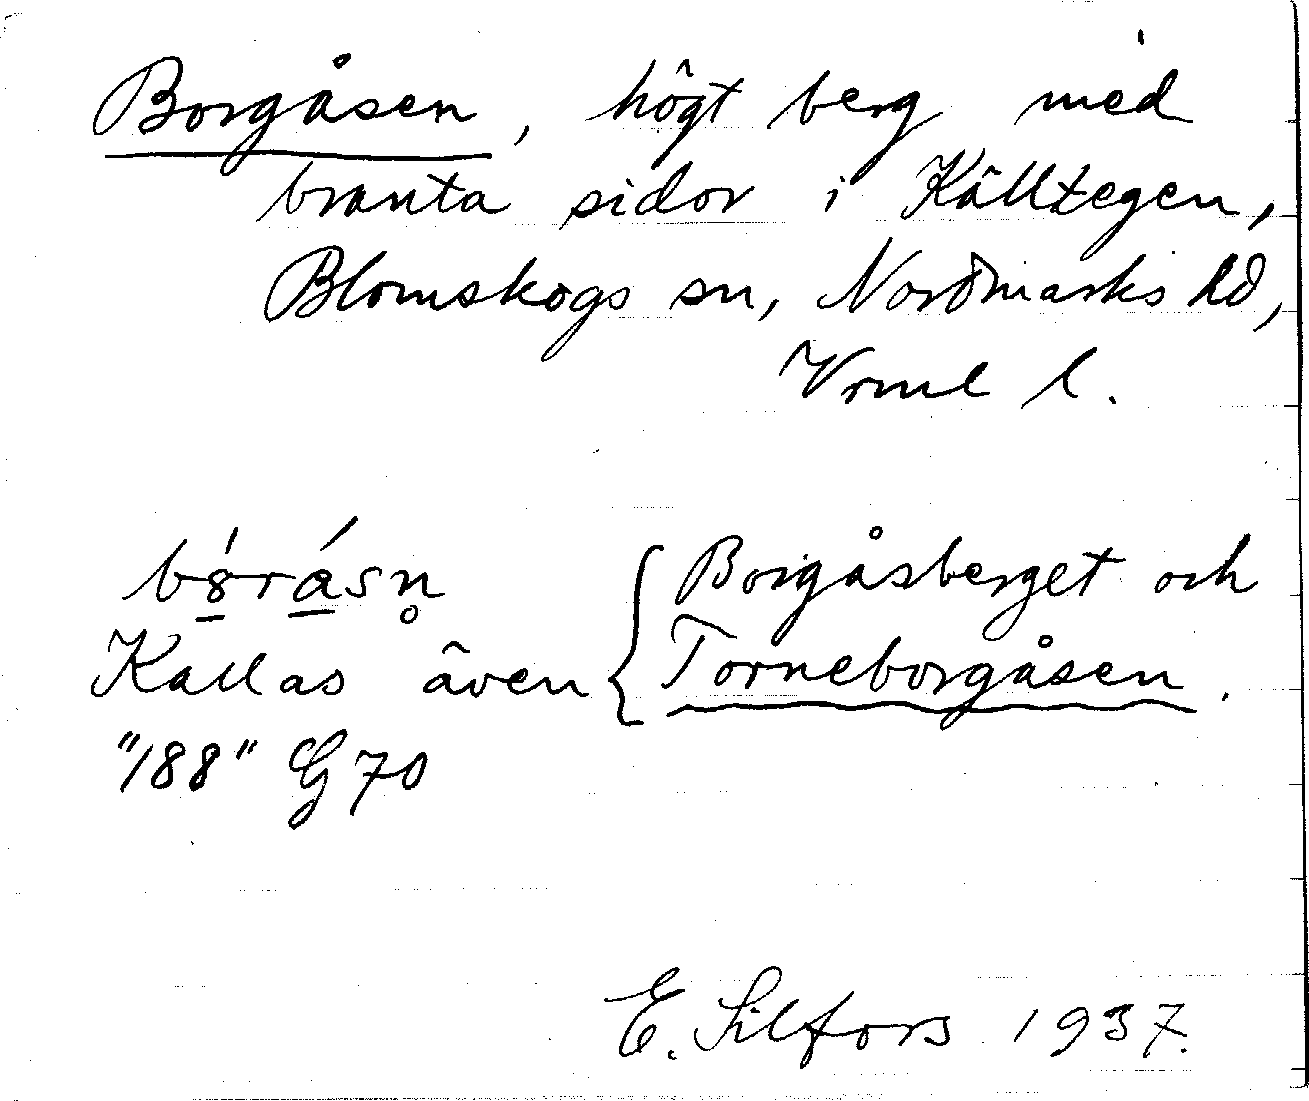 Borgåsen, högt berg med
branta sidor i Källtegen,
Blomskogs sn, Nordmarks hd,
Vrml l.
Borgåsberget och
Kallas även { Torneborgåsen.
"188" G 70
E. Silfors 1937.